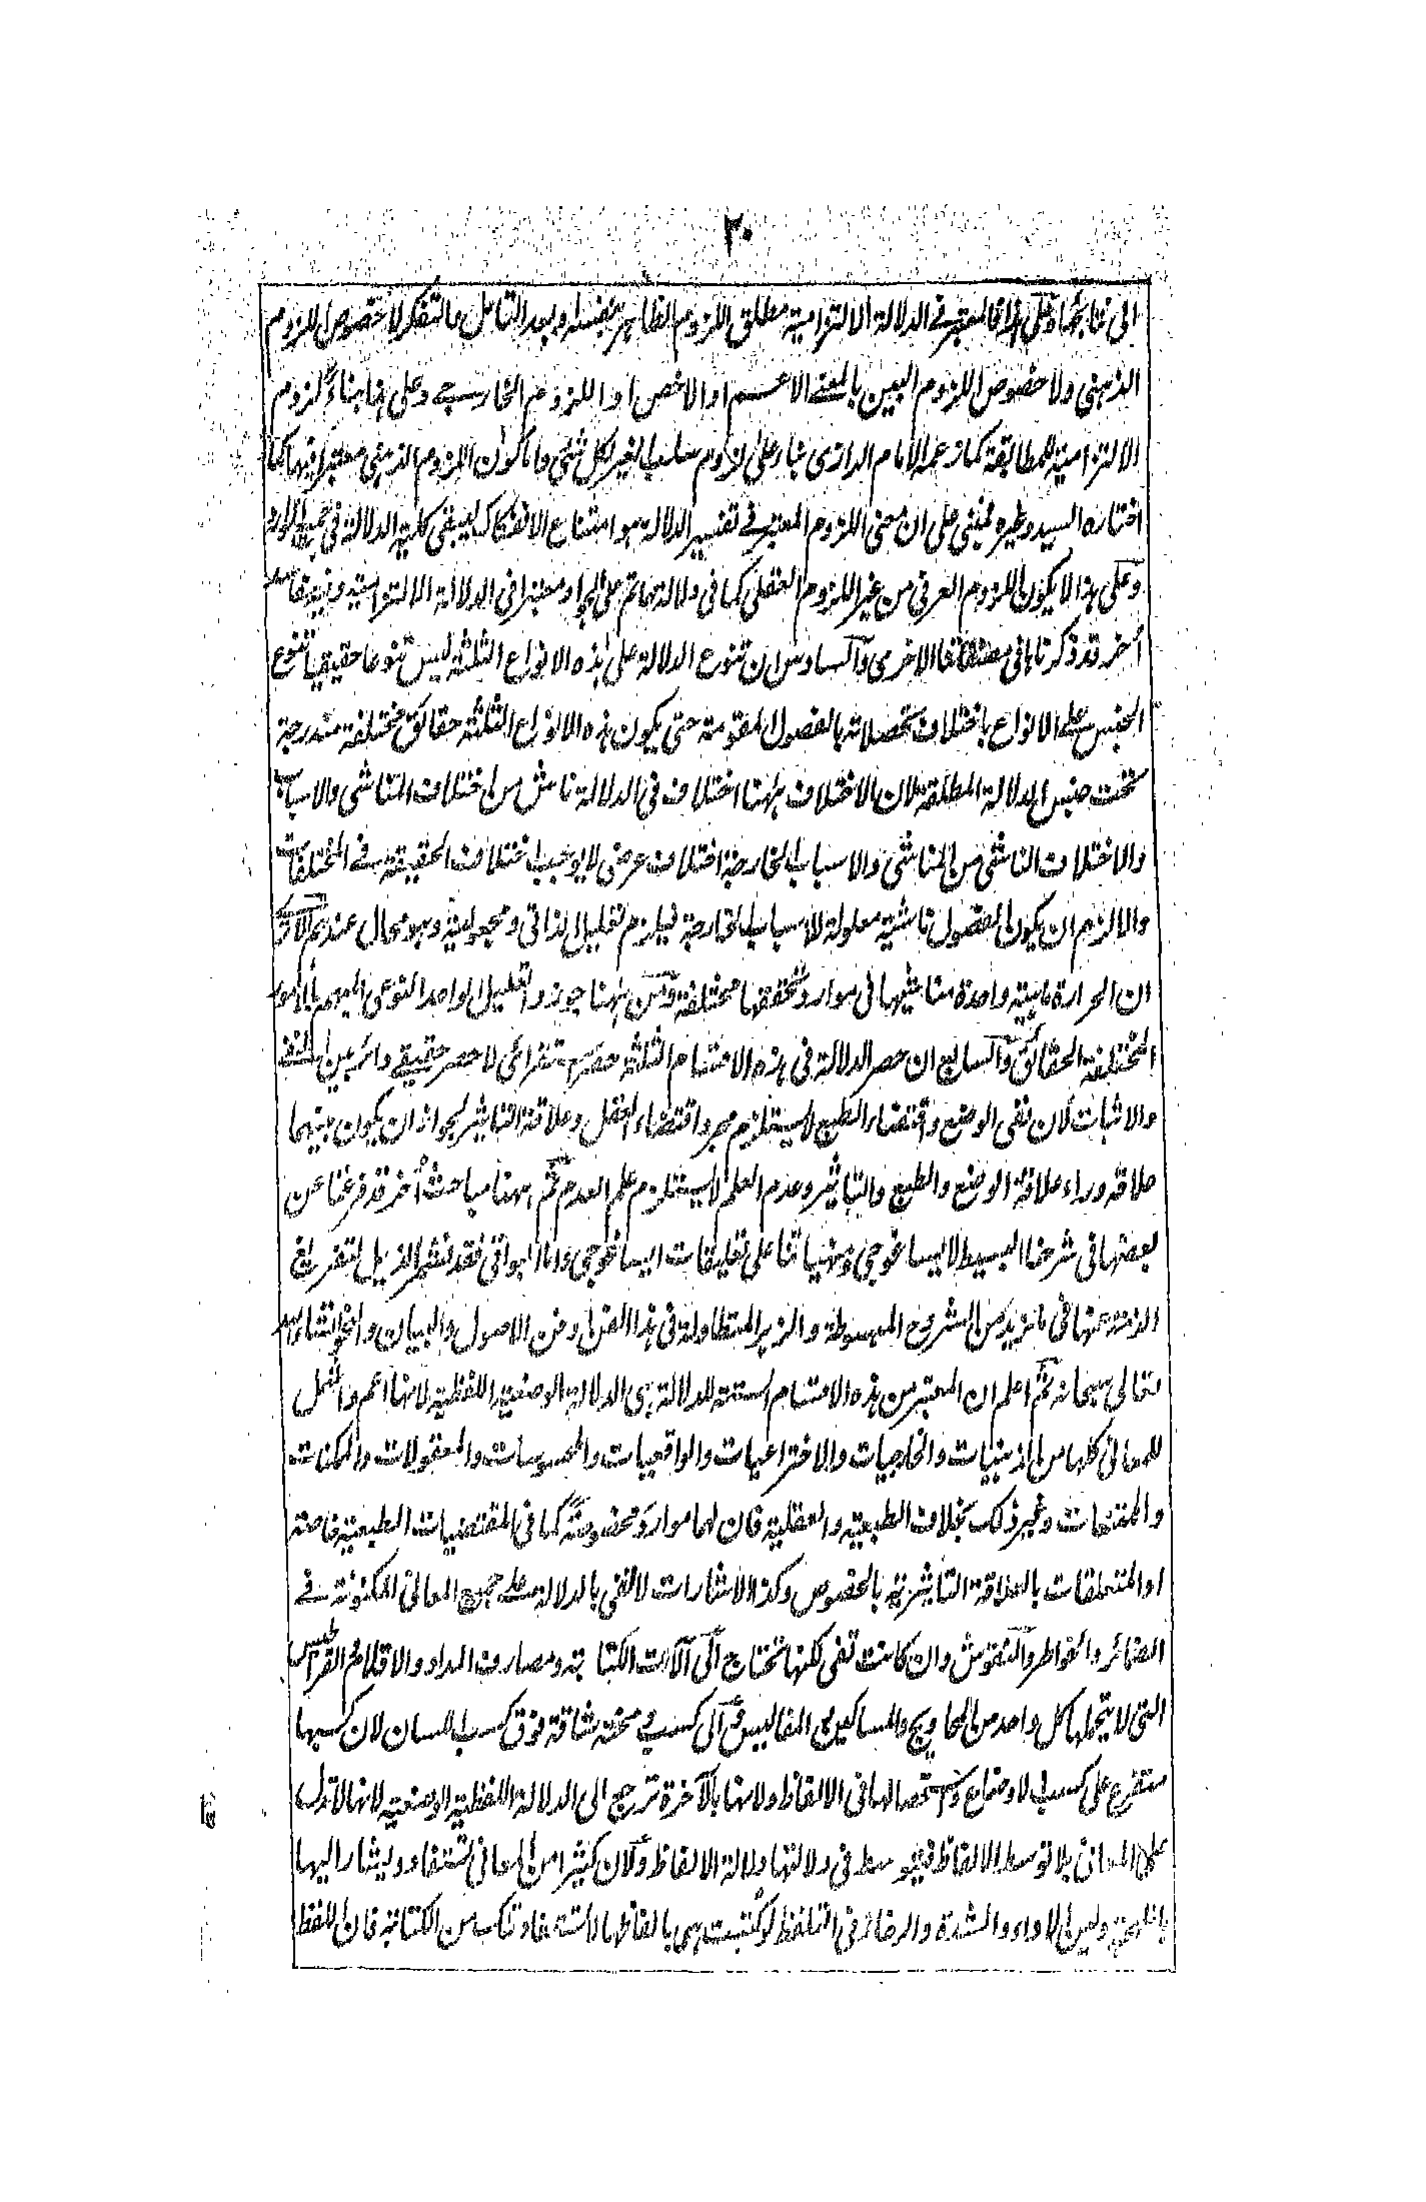 ٢٠
الى فالمعتبر في الدلالة الالتزامية مطلق اللزوم الظاهر بنفسه او بعد التامل والتفكر لا خصوص اللزوم
الذهني ولا خصوص اللزوم البين بالمعنى الاعم او الاخص او اللزوم الخارجي وعلى هذا بناء لزوم
الالتزامية للمطابقة كما زعمه الامام الرازى بناء على لزوم سلب الغير لكل شئ واما كون اللزوم الذهني معتبرا فيها كما
اختاره السيد وغيره فمبني على ان معنى اللزوم المعتبر في تفسير الدلالة هو امتناع الانفكاك ليبقى كلية الدلالة في جميع المواد
وعلى هذا لا يكون اللزوم العرفي من غير اللزوم العقلي كما في دلالة حاتم على الجواد معتبرا في الدلالة الالتزامية
أخر قد ذكرناها في الاخرى والسادس ان تنوع الدلالة على هذه الانواع الثلثة ليس تنوعا حقيقيا تنوع
الجنس على الانواع باختلاف تحصلاته بالفصول المقومة حتى يكون هذه الانواع الثلثة حقائق مختلفة مندرجة
تحت جنس الدلالة المطلقة لان الاختلاف ههنا اختلاف في الدلالة ناش من اختلاف المناشى والاسباب
والاختلاف الناشى من المناشى والاسباب الخارجة اختلاف عرضى لا يوجب اختلاف الحقيقة في المختلفات
والا لزم ان يكون الفصول ناشية معلولة لاسباب الخارجة فيلزم تعليل الذاتى ومجعوليته وهو محال عندهم
ان الحرارة ماهية واحدة مناشيها في موارد تحققها مختلفة ومن ههنا جوزوا تعليل الواحد النوعى بالامور
المختلفة الحقائق والسابع ان حصر الدلالة في هذه الاقسام الثلثة حصر استقرائى لا حصر حقيقي دائر بين النفى
والاثبات لان نفى الوضع واقتضاء الطبع لا يستلزم مجرد اقتضاء العقل وعلاقة التاثير لجواز ان يكون بينهما
علاقة وراء علاقة الوضع والطبع والتاثير وعدم العلم لا يستلزم علم العدم ثم ههنا مباحث أخر قد فرغنا عن
بعضها في شرحنا البسيط لايساغوجى ومنهياتنا على تعليقات ايساغوجى واما البواقى فقد نشمر الذيل لتفريغ
الذمة عنها في ما نزيد من الشروح المبسوطة والزبر المتطاولة في هذا الفن وفن الاصول والبيان والنحو انشاء الله
تعالى سبحانه ثم اعلم ان المعتبر من هذه الاقسام الستة للدلالة هى الدلالة الوضعية اللفظية لانها اعم واشمل
للمعانى كلها من الذهنيات والخارجيات والاختراعيات والواقعيات والمحسوسات والمعقولات والممكنات
والممتنعات وغير ذلك بخلاف الطبعية والعقلية فان لهما موارد مخصوصة كما في المقتضيات الطبعية خاصة
او المتعلقات بالعلاقة التاثيرية بالخصوص وكذا الاشارات لا تفى بالدلالة على جميع المعانى المكنونة في
الضمائر والخواطر والنقوش وان كانت تفى لكنها تحتاج الى آلات الكتابة ومصارف المداد والاقلام والقراطيس
التى لا يتحملها كل واحد من المحاويج والمساكين المفاليس والى كسب ومحنة شاقة فوق كسب اللسان لان كسبها
متفرع على كسب الاوضاع واستحصالها في الالفاظ ولانها بالآخرة ترجع الى الدلالة اللفظية الوضعية لانها لا تدل
على المعانى بلا توسط الالفاظ فيتوسط في دلالتها دلالة الالفاظ ولان كثيرا من المعانى تستفاد ويشار اليها
باللهجة ولين الاداء والشدة والرخاء في التلفظ لو كتبت هى بالفاظها لا تستفاد تلك من الكتابة فان اللفظ